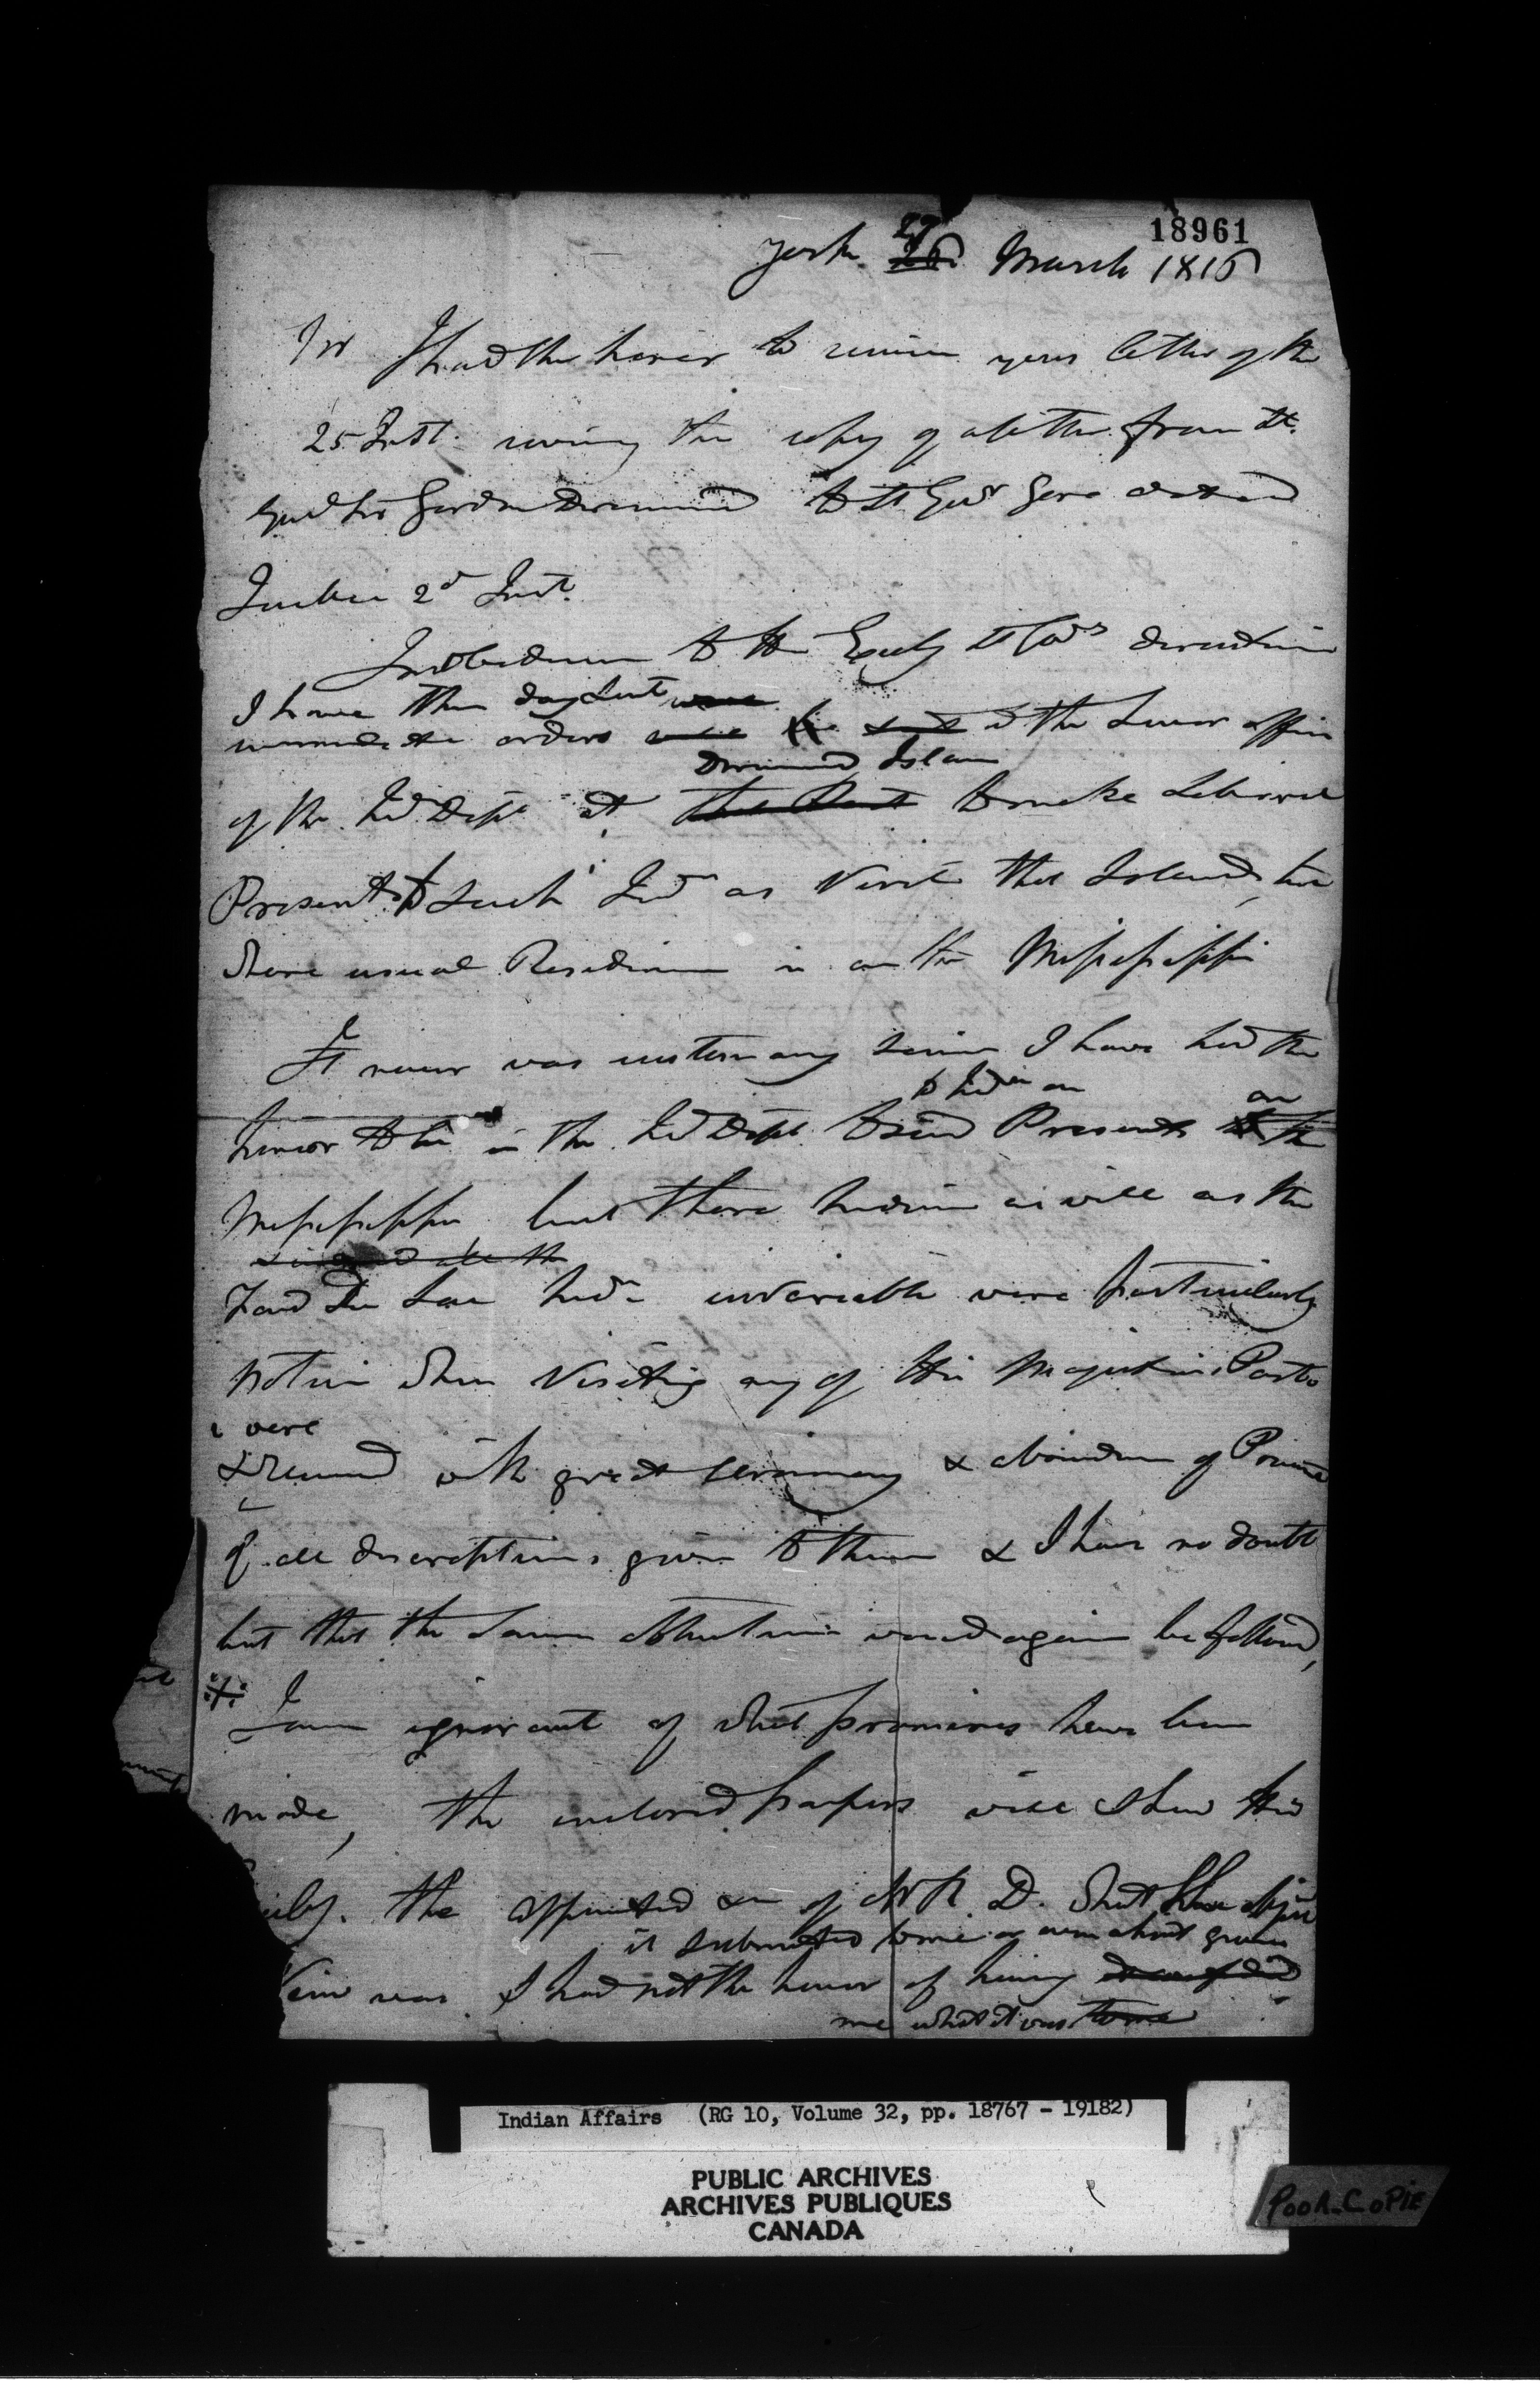 18961
York 27 26 March 1816
Sir I had the honor to receive your letter of the
25 Inst. covering the copy of a letter from Lt.
Genl Sir Gordon Drummond to Lt Govr Gore dated
Quebec 2d Inst.
In obedience to the Excely Lt Govrs direction
I have this day sent
immediate orders to the Senior officer
Drummond Island
of the Ind Dept at to make liberal
Presents to such Indn as Visit that Island,
Whose usual Residence is on the Mississippi
It never was customary since I have had the
to Indns on on
honor to be in the Ind Dept to send Presents to the
Mississippi but those Indians as well as the
Fond Du Lac Indn invariable were particularly
notice when Visiting any of His Majesties Posts
& were
& received with great ceremony & abundance of
of all descriptions given to them & I have no doubt
but that the same would again be followed,
I am ignorant of what promises have been
made, the enclosed papers will shew His
the appointed of Mr R. D. What
it submitted to me or even about
View was I had not the honor of having
me what it was to me
Indian Affairs (RG 10, Volume 32, pp. 18767 - 19182)
PUBLIC ARCHIVES
ARCHIVES PUBLIQUES
CANADA
POOR COPIE